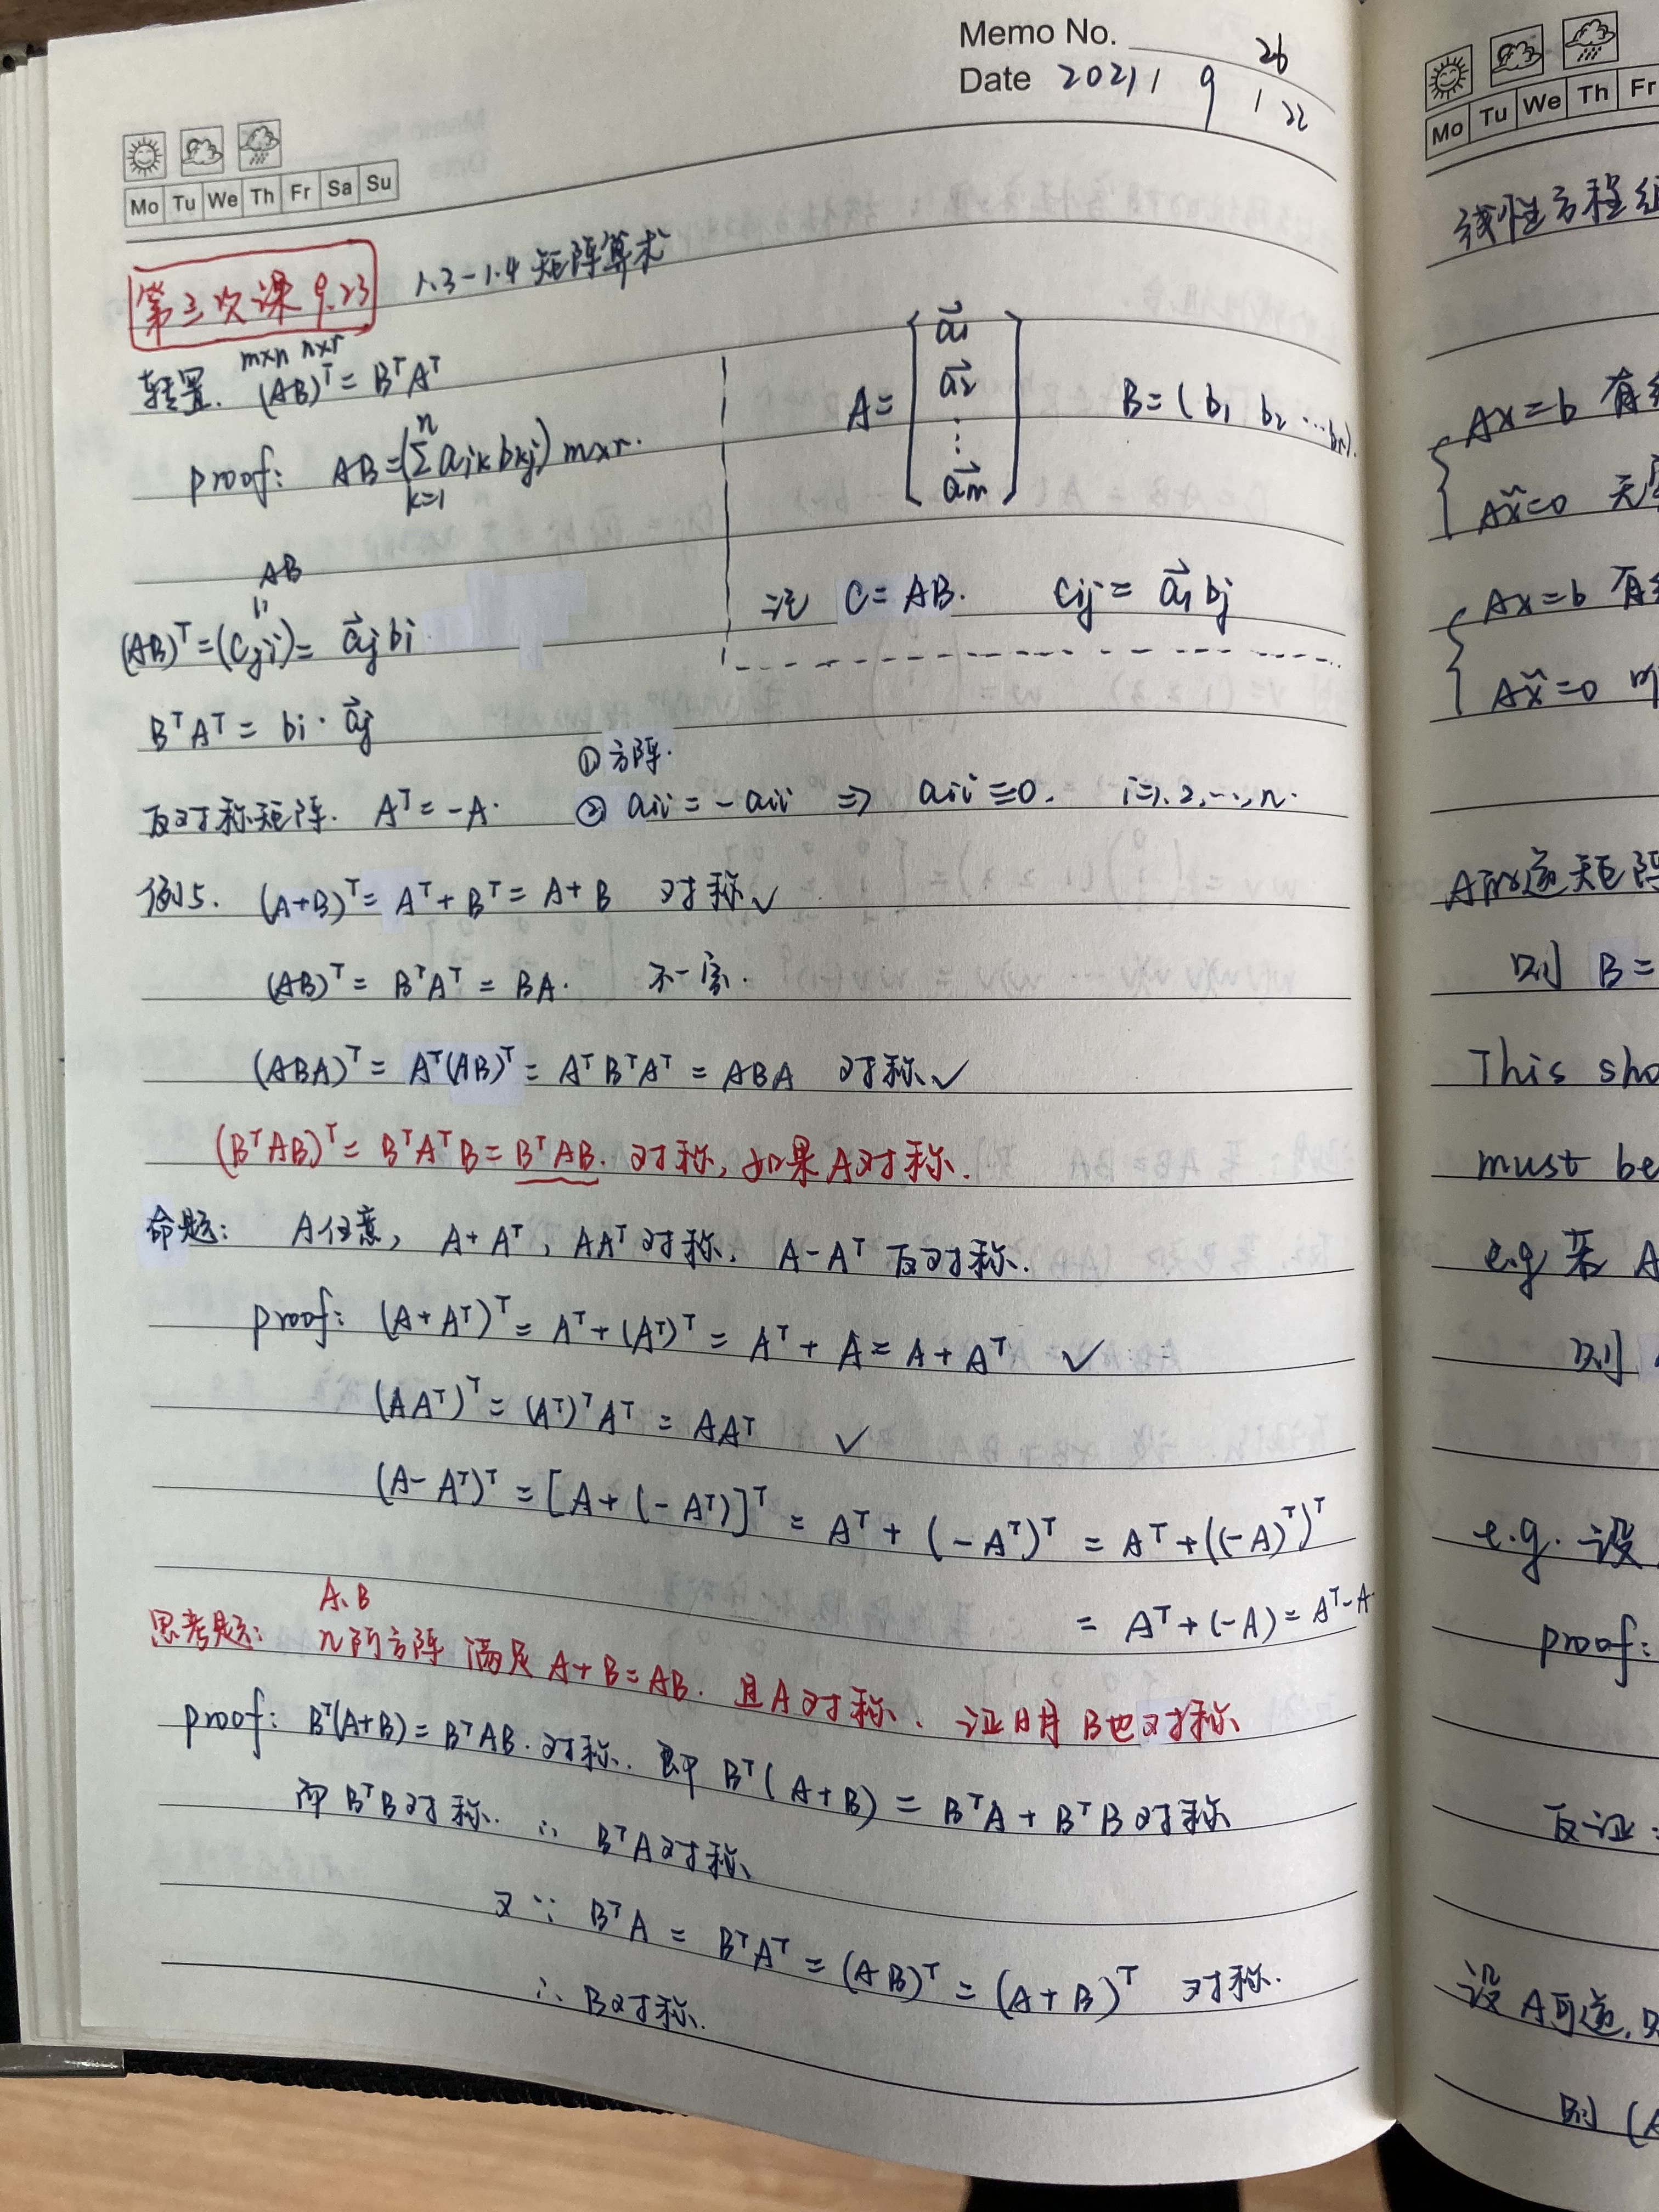 Memo No. 26
Date 2021 / 9 / 22
Mo Tu We Th Fr Sa Su
第三次课 9.23
1.3-1.4 矩阵算术
m×n n×r
转置. (AB)ᵀ = BᵀAᵀ
proof: AB = (∑ₖ₌₁ⁿ aᵢₖbₖⱼ) m×r.
A = [a⃗₁ a⃗₂ ⋮ a⃗ₘ] B = (b₁ b₂ … bᵣ).
记 C = AB. Cᵢⱼ = a⃗ᵢ bⱼ
AB
(AB)ᵀ = (Cⱼᵢ) = a⃗ⱼ bᵢ
BᵀAᵀ = bᵢ · a⃗ⱼ
① 方阵.
反对称矩阵. Aᵀ = -A. ② aᵢᵢ = -aᵢᵢ ⇒ aᵢᵢ = 0. i=1,2,…,n.
例5. (A+B)ᵀ = Aᵀ + Bᵀ = A + B 对称 ✓
(AB)ᵀ = BᵀAᵀ = BA. 不一定.
(ABA)ᵀ = Aᵀ(AB)ᵀ = AᵀBᵀAᵀ = ABA 对称 ✓
(BᵀAB)ᵀ = BᵀAᵀB = BᵀAB. 对称, 如果A对称.
命题: A任意, A+Aᵀ, AAᵀ对称, A-Aᵀ 反对称.
proof: (A+Aᵀ)ᵀ = Aᵀ+(Aᵀ)ᵀ = Aᵀ + A = A + Aᵀ ✓
(AAᵀ)ᵀ = (Aᵀ)ᵀAᵀ = AAᵀ ✓
(A-Aᵀ)ᵀ = [A+(-Aᵀ)]ᵀ = Aᵀ + (-Aᵀ)ᵀ = Aᵀ+((-A)ᵀ)ᵀ
= Aᵀ+(-A) = Aᵀ-A
A、B
思考题: n阶方阵 满足 A+B=AB. 且A对称、证明 B也对称
proof: Bᵀ(A+B) = BᵀAB. 对称. 即 Bᵀ(A+B) = BᵀA + BᵀB 对称
而 BᵀB对称. ∴ BᵀA对称
又∵ BᵀA = BᵀAᵀ = (AB)ᵀ = (A+B)ᵀ 对称.
∴ B对称.
Mo Tu We Th Fr
线性方程组
Ax=b 有
Ax̃=0
Ax=b 有
Ax̃=0
A的逆矩阵
则 B=
This sho
must be
e.g 若 A
则
e.g. 设
proof:
反证:
设 A可逆,
则 (A